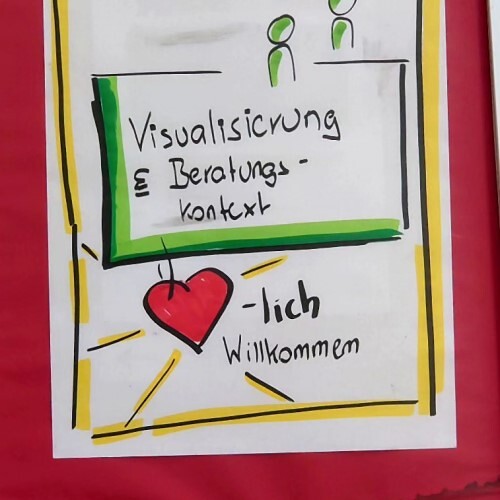 Visualisierung
im Beratungs-
kontext
-lich
Willkommen